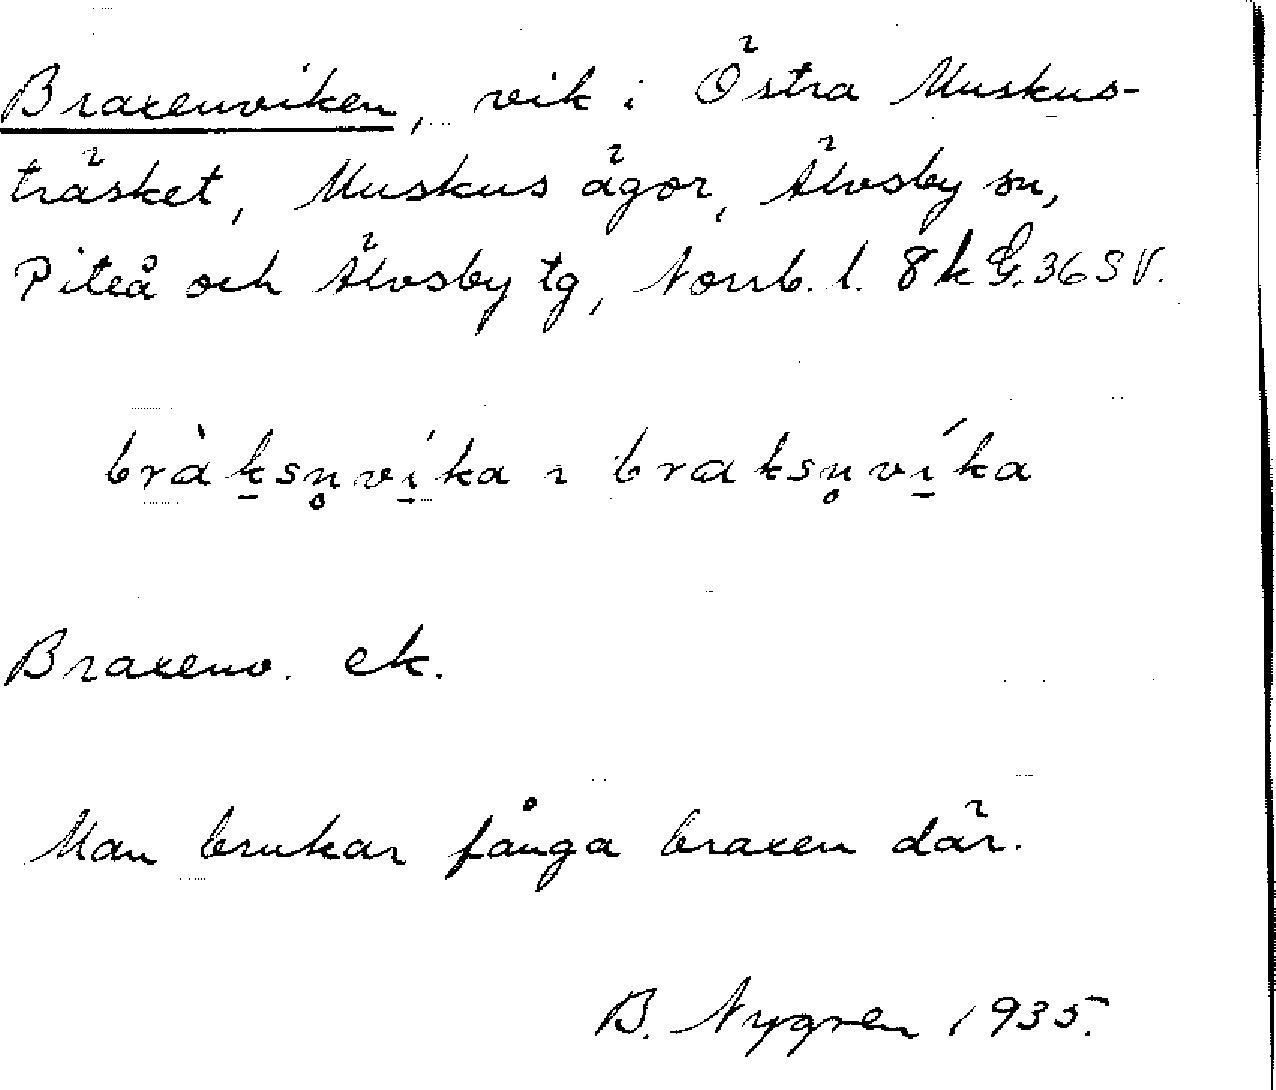 Braxenviken, vik i Östra Muskus-
träsket, Muskus ägor, Älvsby sn,
Piteå och Älvsby tg, Norrb. l. 8k G. 36 SV.
bràk̠sn̥ví̠ka ~ braksn̥ví̠ka
Braxenv. ek.
Man brukar fånga braxen där.
B. Nygren 1935.